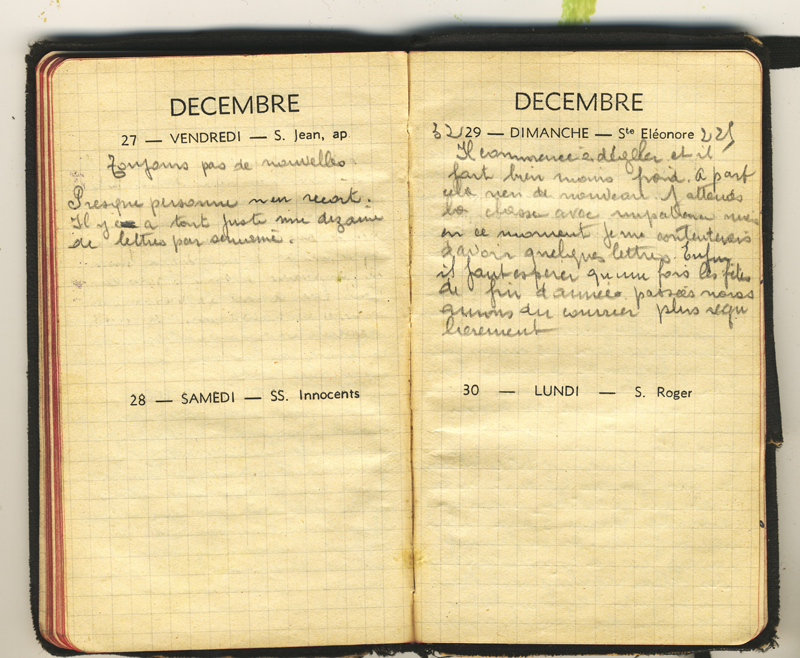 DECEMBRE
27 — VENDREDI — S. Jean, ap
Toujours pas de nouvelles
Presque personne n'en recoit.
Il y a tout juste une dizaine
de lettres par semaine.
28 — SAMEDI — SS. Innocents
DECEMBRE
29 — DIMANCHE — Ste Eléonore
Il commence a dégeler et il
fait bien moins froid. A part
cela rien de nouveau. J'attends
la classe avec impatience mais
en ce moment je me contenterais
d'avoir quelques lettres. Enfin
il faut esperer qu'une fois les fêtes
de fin d'année passées nous
aurons du courrier plus regu
lierement
30 — LUNDI — S. Roger